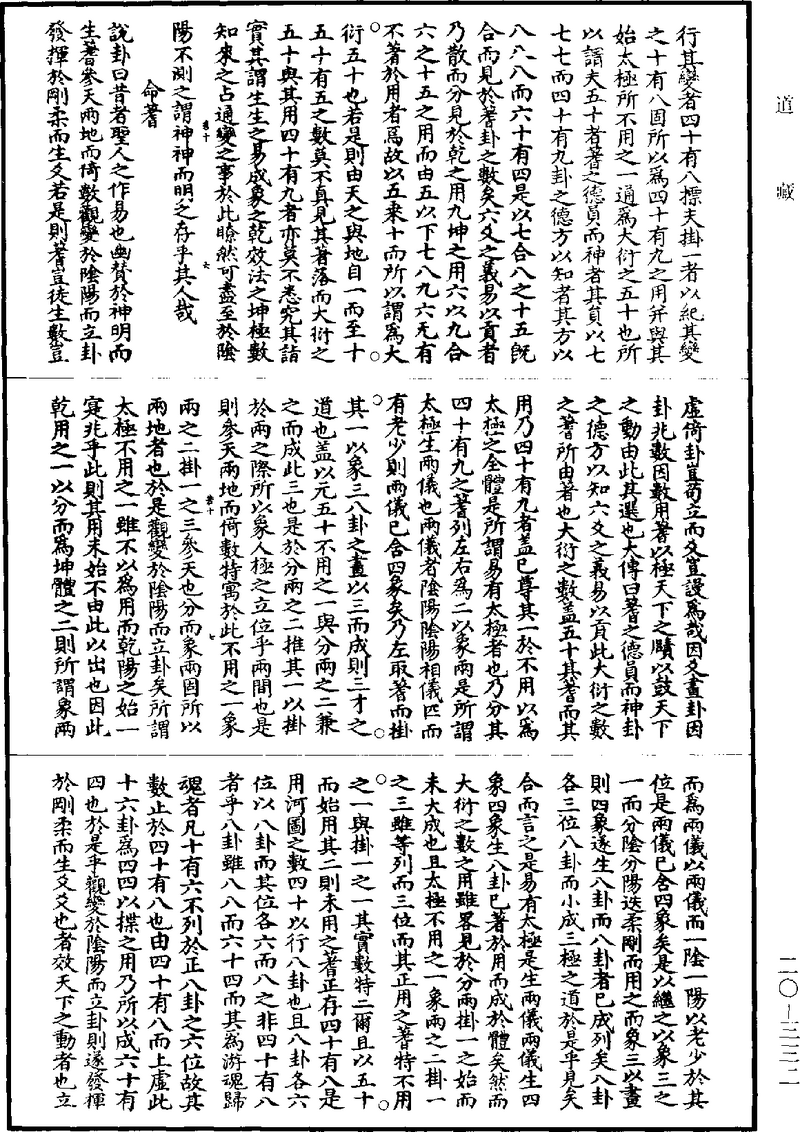 道藏
行其變者四十有八揲夫掛一者以紀其變
之十有八固所以爲四十有九之用并與其
始太極所不用之一通爲大衍之五十也所
以謂夫五十者蓍之德員而神者其員以七
七七而四十有九卦之德方以知者其方以
八八八而六十有四是以七合八之十五旣
合而見於蓍卦之數矣六爻之義易以貢者
乃散而分見於乾之用九坤之用六以九合
六之十五之用而由五以下七八九六无有
不著於用者爲故以五乘十而所以謂爲大
衍五十也若是則由天之與地自一而至十
五十有五之數莫不真見其著落而大衍之
五十與其用四十有九者亦莫不悉究其詣
實其謂生生之易成象之乾效法之坤極數
知來之占通變之事於此瞭然可盡至於陰
陽不測之謂神神而明之存乎其人哉
命蓍
說卦曰昔者聖人之作易也幽贊於神明而
生蓍參天兩地而倚數觀變於陰陽而立卦
發揮於剛柔而生爻若是則蓍豈徒生數豈
虛倚卦豈苟立而爻豈謾爲哉因爻畫卦因
卦兆數因數用蓍以極天下之賾以鼓天下
之動由此其選也大傳曰蓍之德員而神卦
之德方以知六爻之義易以貢此大衍之數
之蓍所由著也大衍之數蓋五十其蓍而其
用乃四十有九者蓋已尊其一於不用以爲
太極之全體是所謂易有太極者也乃分其
四十有九之蓍列左右爲二以象兩是所謂
太極生兩儀也兩儀者陰陽陰陽相儀匹而
有老少則兩儀已含四象矣乃左取蓍而掛
其一以象三八卦之畫以三而成則三才之
道也蓋以元五十不用之一與分兩之二兼
之而成此三也是於分兩之二推其一以掛
於兩之際所以象人極之立位乎兩間也是
則參天兩地而倚數特寓於此不用之一象
兩之二掛一之三參天也分而象兩因所以
兩地者也於是觀變於陰陽而立卦矣所謂
太極不用之一雖不以爲用而乾陽之始一
寔兆乎此則其用未始不由此以出也因此
乾用之一以分而爲坤體之二則所謂象兩
而爲兩儀以兩儀而一陰一陽以老少於其
位是兩儀已含四象矣是以繼之以象三之
一而分陰分陽迭柔剛而用之而象三以畫
則四象遂生八卦而八卦者已成列矣八卦
各三位八卦而小成三極之道於是乎見矣
合而言之是易有太極是生兩儀兩儀生四
象四象生八卦已著於用而成於體矣然而
大衍之數之用雖畧見於分兩掛一之始而
未大成也且太極不用之一象兩之二掛一
之三雖等列而三位而其正用之蓍特不用
之一與掛一之一其實數特二爾且以五十
而始用其二則未用之蓍正存四十有八是
用河圖之數四十以行八卦也且八卦各六
位以八卦而其位各六而八之非四十有八
者乎八卦雖八八而六十四而其爲游魂歸
魂者凡十有六不列於正八卦之六位故其
數止於四十有八也由四十有八而上虛此
十六卦爲四四以揲之用乃所以成六十有
四也於是乎觀變於陰陽而立卦則遂發揮
於剛柔而生爻爻也者效天下之動者也立
二〇—三三二